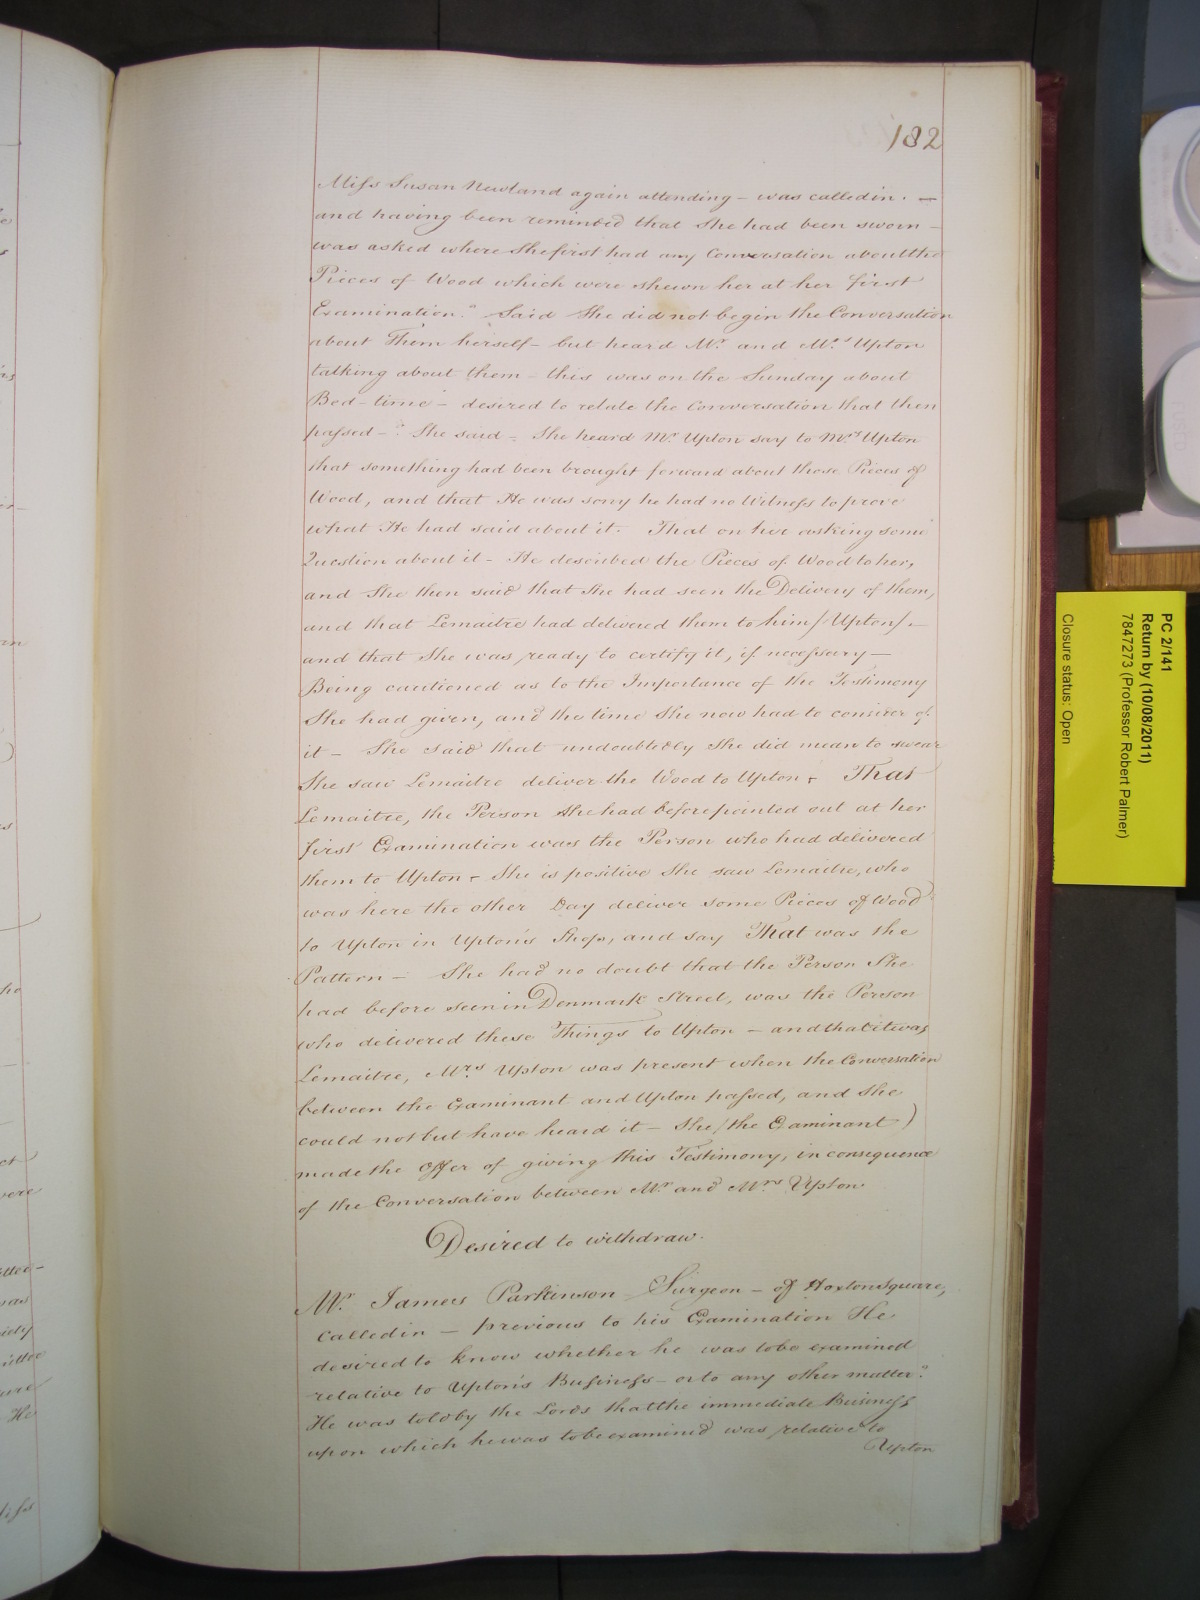 182
Miss Susan Newland again attending – was called in. –
and having been reminded that She had been sworn –
was asked where She first had any Conversation about the
Pieces of Wood which were shewn her at her first
Examination." Said She did not begin the Conversation
about Them herself – but heard Mr. and Mrs. Upton
talking about them – this was on the Sunday about
Bed-time – desired to relate the Conversation that then
passed –" She said – She heard Mr. Upton say to Mrs. Upton
that something had been brought forward about those Pieces of
Wood, and that He was sorry he had no Witness to prove
what He had said about it. That on her asking some
Question about it – He described the Pieces of Wood to her,
and She then said that She had seen the Delivery of them,
and that Lemaitre had delivered them to him /Upton/. –
and that She was ready to certify it, if necessary –
Being cautioned as to the Importance of the Testimony
She had given, and the time She now had to consider of
it – She said that undoubtedly She did mean to swear
She saw Lemaitre deliver the Wood to Upton – That
Lemaitre, the Person She had before pointed out at her
first Examination was the Person who had delivered
them to Upton – She is positive She saw Lemaitre, who
was here the other Day deliver some Pieces of Wood
to Upton in Upton's Shop, and say That was the
Pattern – She had no doubt that the Person She
had before seen in Denmark Street, was the Person
who delivered these Things to Upton – and that it was
Lemaitre, Mrs. Upton was present when the Conversation
between the Examinant and Upton passed, and She
could not but have heard it – She /the Examinant)
made the Offer of giving this Testimony, in consequence
of the Conversation between Mr. and Mrs. Upton
Desired to withdraw.
Mr. James Parkinson Surgeon – of Hoxton Square,
Called in – previous to his Examination He
desired to know whether he was to be examined
relative to Upton's Business – or to any other matter."
He was told by the Lords that the immediate Business
upon which he was to be examined was relative to
Upton
PC 2/141
Return by (10/08/2011)
7847273 (Professor Robert Palmer)
Closure status: Open